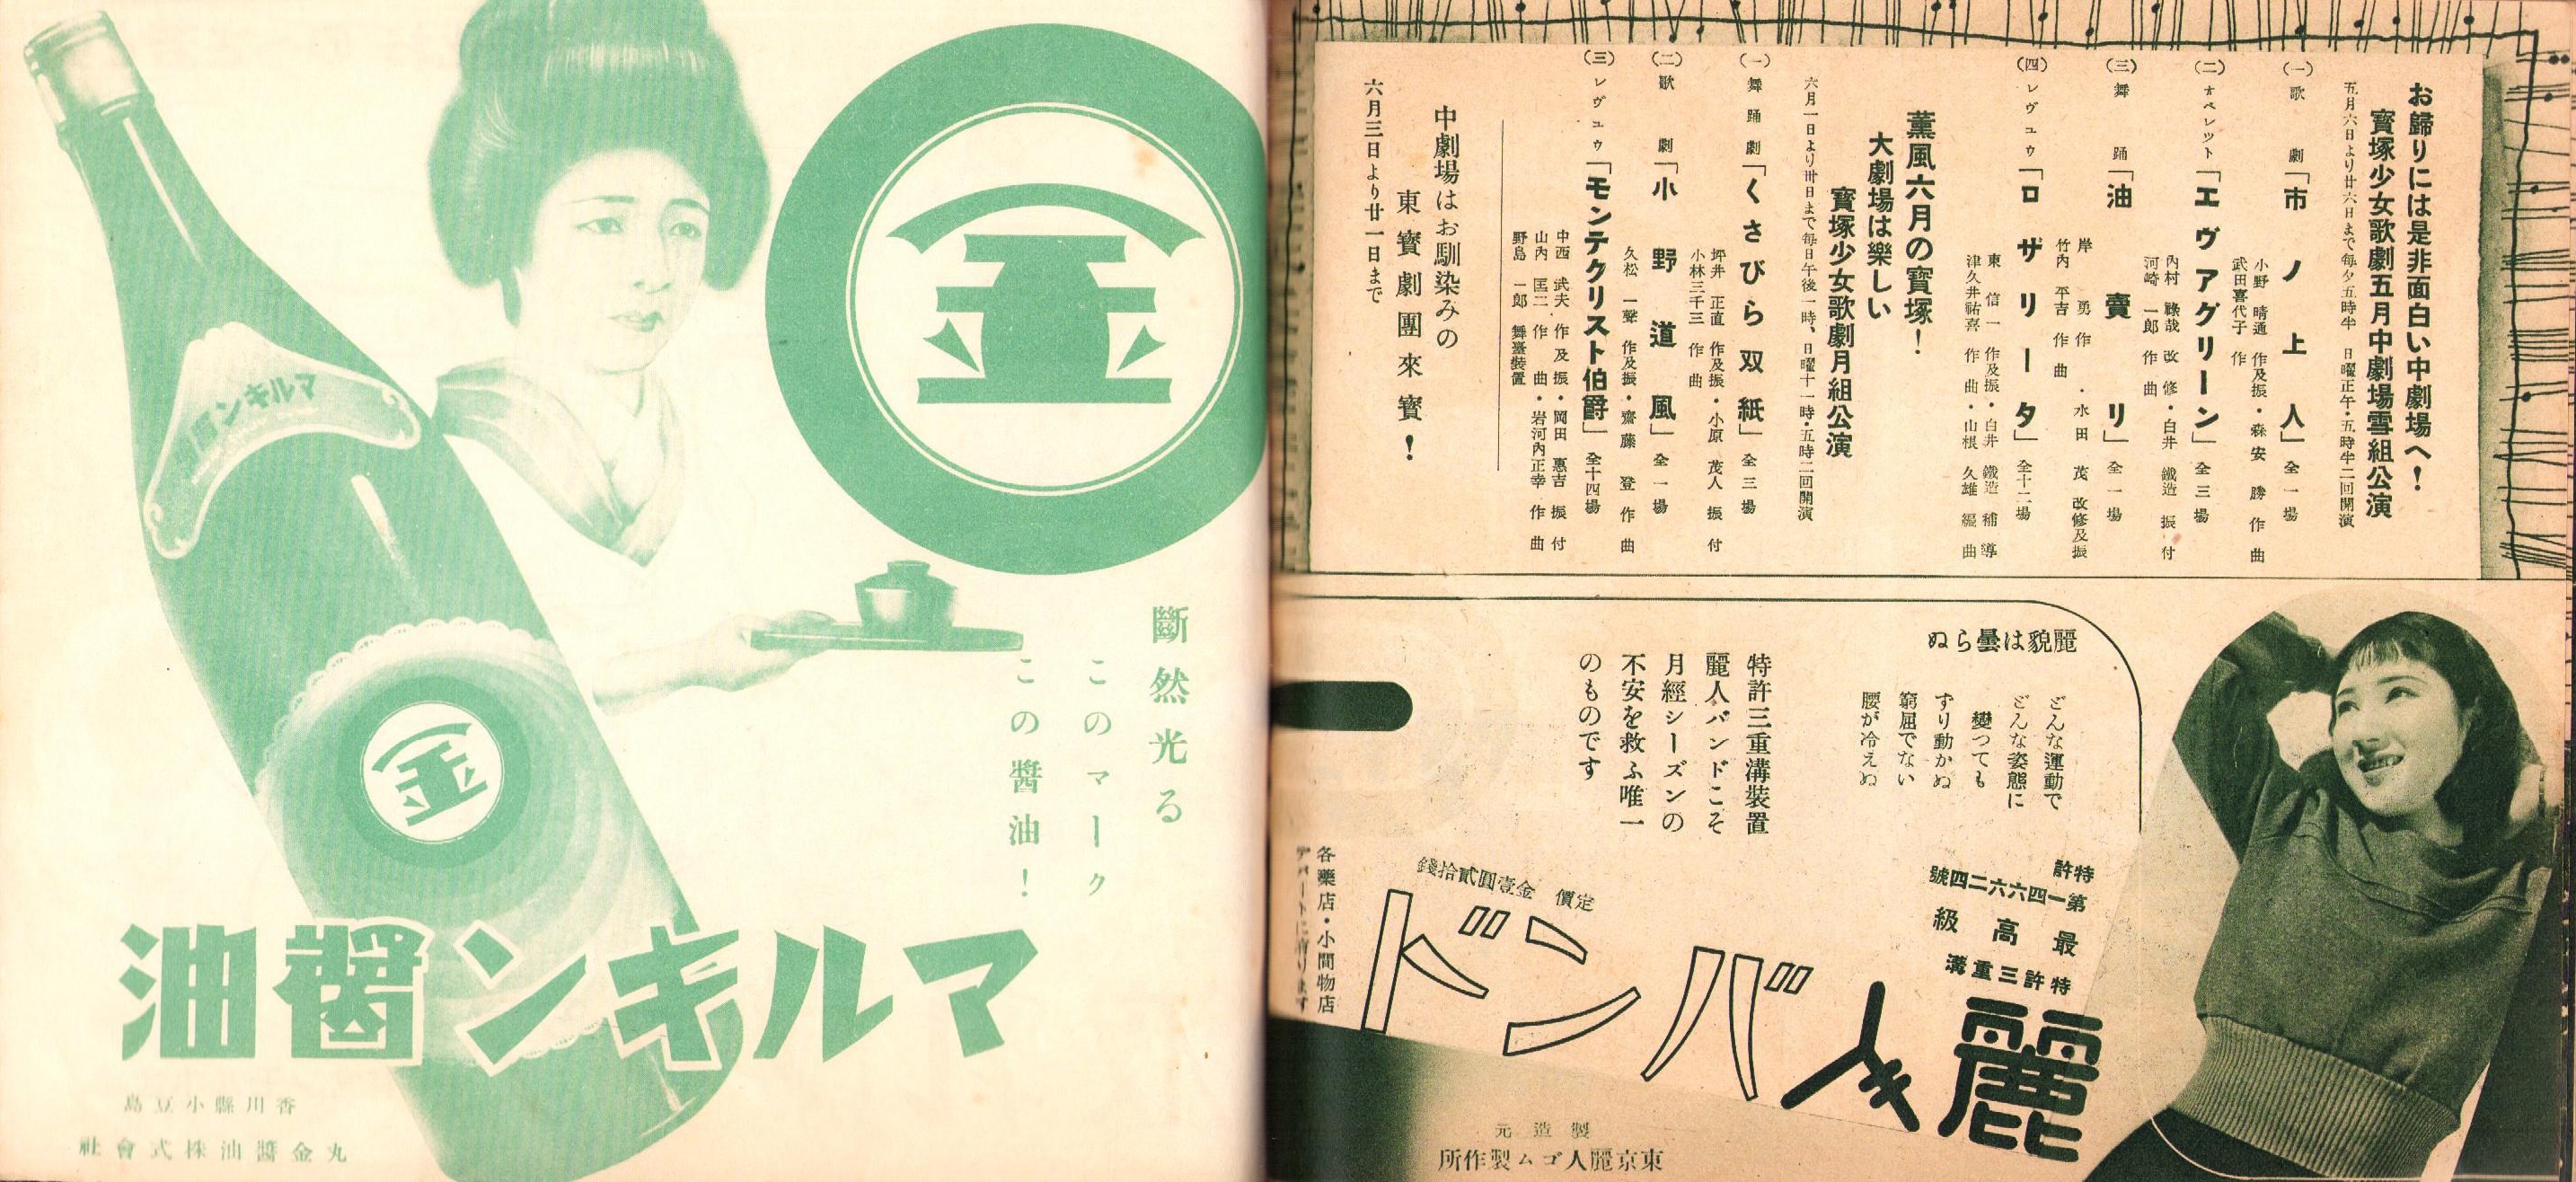 お歸りには是非面白い中劇場へ！
寳塚少女歌劇五月中劇場雪組公演
五月六日より廿六日まで毎夕五時半 日曜正午・五時半二回開演
(一) 歌劇「市ノ上人」全一場
小野晴通 作及振・森安勝 作曲
武田喜代子 作
(二) オペレツト「エヴアグリーン」全三場
內村祿哉 改修・白井鐵造 振付
河崎一郎 作曲
(三) 舞踊「油賣リ」全一場
岸勇作・水田茂 改修及振
竹內平吉 作曲
(四) レヴュウ「ロザリータ」全十二場
東信一 作及振・白井鐵造 補導
津久井祐喜 作曲・山根久雄 編曲
薰風六月の寳塚！
大劇場は樂しい
寳塚少女歌劇月組公演
六月一日より卅日まで毎日午後一時、日曜十一時・五時二回開演
(一) 舞踊劇「くさびら双紙」全三場
坪井正直 作及振・小原茂人 振付
小林三千三 作曲
(二) 歌劇「小野道風」全一場
久松一聲 作及振・齋藤登 作曲
(三) レヴュウ「モンテクリスト伯爵」全十四場
中西武夫 作及振・岡田惠吉 振付
山內匡二 作曲・岩河內正幸 作曲
野島一郎 舞臺裝置
中劇場はお馴染みの
東寳劇團來寳！
六月三日より廿一日まで
麗貌は曇らぬ
どんな運動で
どんな姿態に
變つても
ずり動かぬ
窮屈でない
腰が冷えぬ
特許三重溝裝置
麗人バンドこそ
月經シーズンの
不安を救ふ唯一
のものです
特許
第一四六六二四號
最高級
特許三重溝
麗人バンド
定價 金壹圓貳拾錢
各藥店・小間物店
デパートに有ります
製造元
東京麗人ゴム製作所
金
斷然光る
このマーク
この醬油！
マルキン醬油
金
マルキン醬油
香川縣小豆島
丸金醬油株式會社